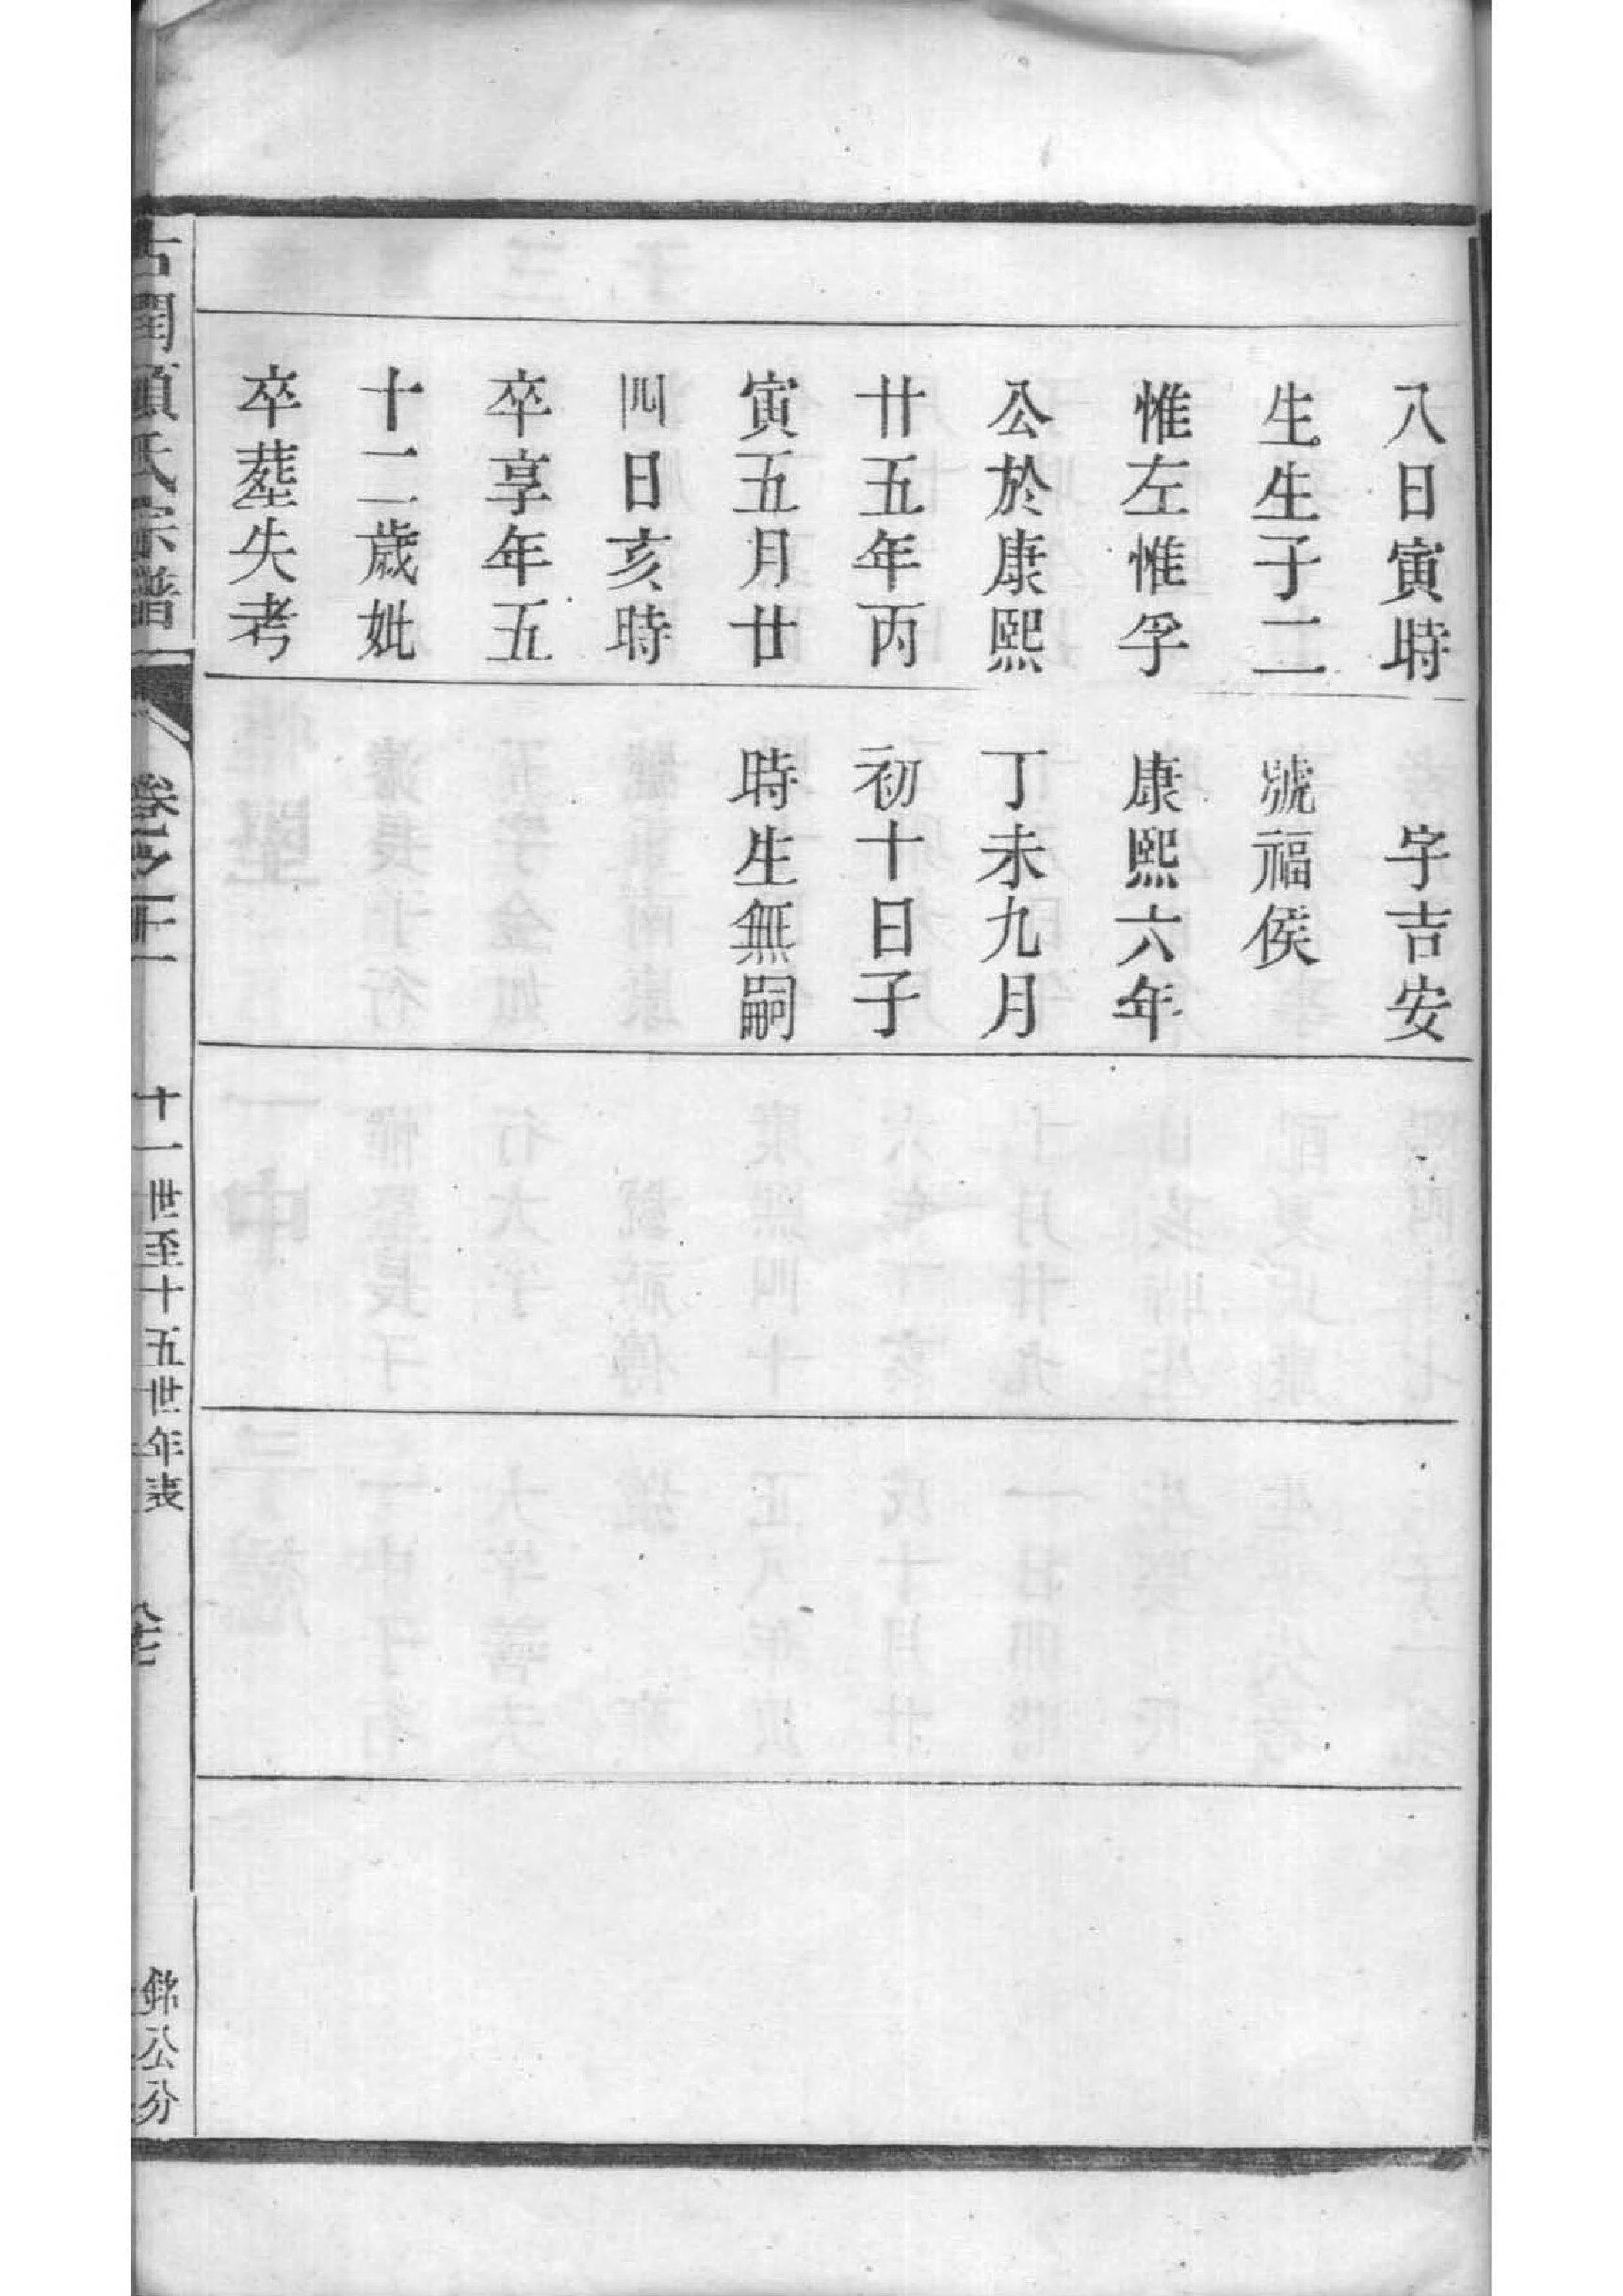 八日寅時
生生子二
惟左惟孚
公於康熙
廿五年丙
寅五月廿
四日亥時
卒享年五
十二歲妣
卒塟失考
字吉安
號福侯
康熙六年
丁未九月
初十日子
時生無嗣
氏宗譜
十一世至十五世年表
公分